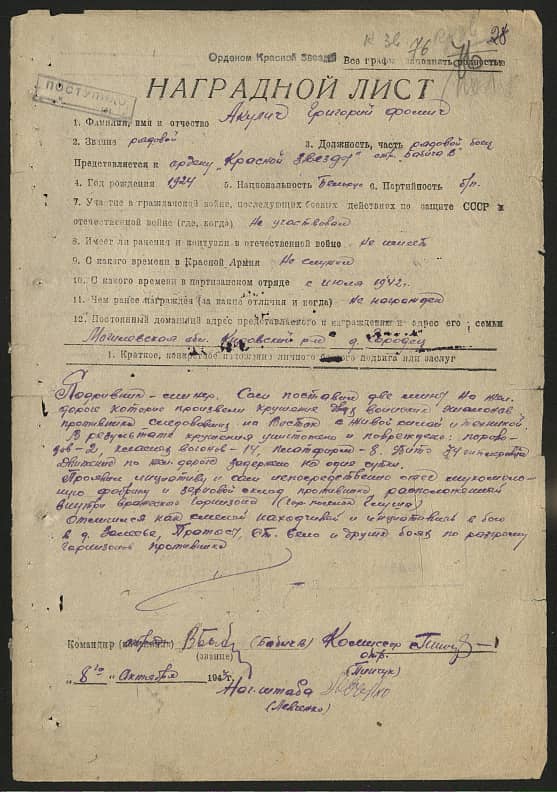 76
28
Орденом Красной Звезды
Все графы заполнять полностью
ПОСТУПИЛО
НАГРАДНОЙ ЛИСТ
1. Фамилия, имя и отчество Акулич Григорий Фомич
2. Звание рядовой 3. Должность, часть рядовой боец
Представляется к ордену „Красной звезды" отр. Бабича В
4. Год рождения 1924 5. Национальность Белорус 6. Партийность б/п.
7. Участие в гражданской войне, последующих боевых действиях по защите СССР и
отечественной войне (где, когда) Не участвовал
8. Имеет ли ранения и контузии в отечественной войне Не имеет
9. С какого времени в Красной Армии Не служил
10. С какого времени в партизанском отряде с июля 1942 г.
11. Чем ранее награжден (за какие отличия и когда) Не награжден
12. Постоянный домашний адрес представляемого к награждению и адрес его семьи
обл. р-н д. Городец
1. Краткое, конкретное изложение личного боевого подвига или заслуг
Подрывник-минер. Сам поставил две мины на жел.
дороге которые произвели крушение двух воинских эшелонов
противника следовавших на Восток с живой силой и техникой.
В результате крушения уничтожено и повреждено: парово-
зов-2, вагонов-14, платформ-8. Убито 74
Движение по жел. дороге задержано на одни сутки.
Проявил инициативу и сам непосредственно сжег мукомоль-
ную фабрику и зерновой склад противника расположенный
внутри вражеского гарнизона
Отличился как смелый находчивый и в бою
в д. и других боях по разгрому
гарнизонов противника
Командир (Бабичев) Комиссар
(звание) отр. (Пинчук)
„8го" Октября 194
Нач. штаба
(Левченко)